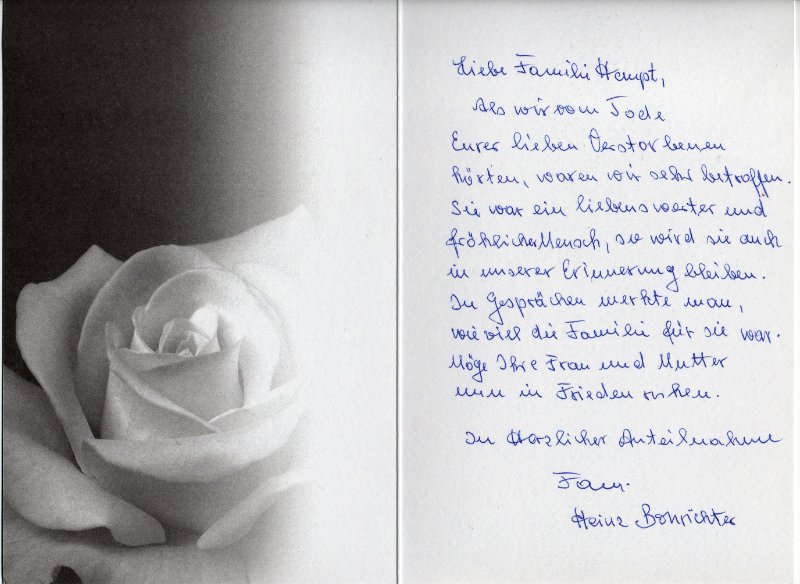 Liebe Familie Hempt,
Als wir vom Tode
Eurer lieben Verstorbenen
hörten, waren wir sehr betroffen.
Sie war ein liebenswerter und
fröhlicher Mensch, so wird sie auch
in unserer Erinnerung bleiben.
In Gesprächen merkte man,
wie viel die Familie für sie war.
Möge Ihre Frau und Mutter
nun in Frieden ruhen.
In Herzlicher Anteilnahme
Fam.
Heinz Bohrichter